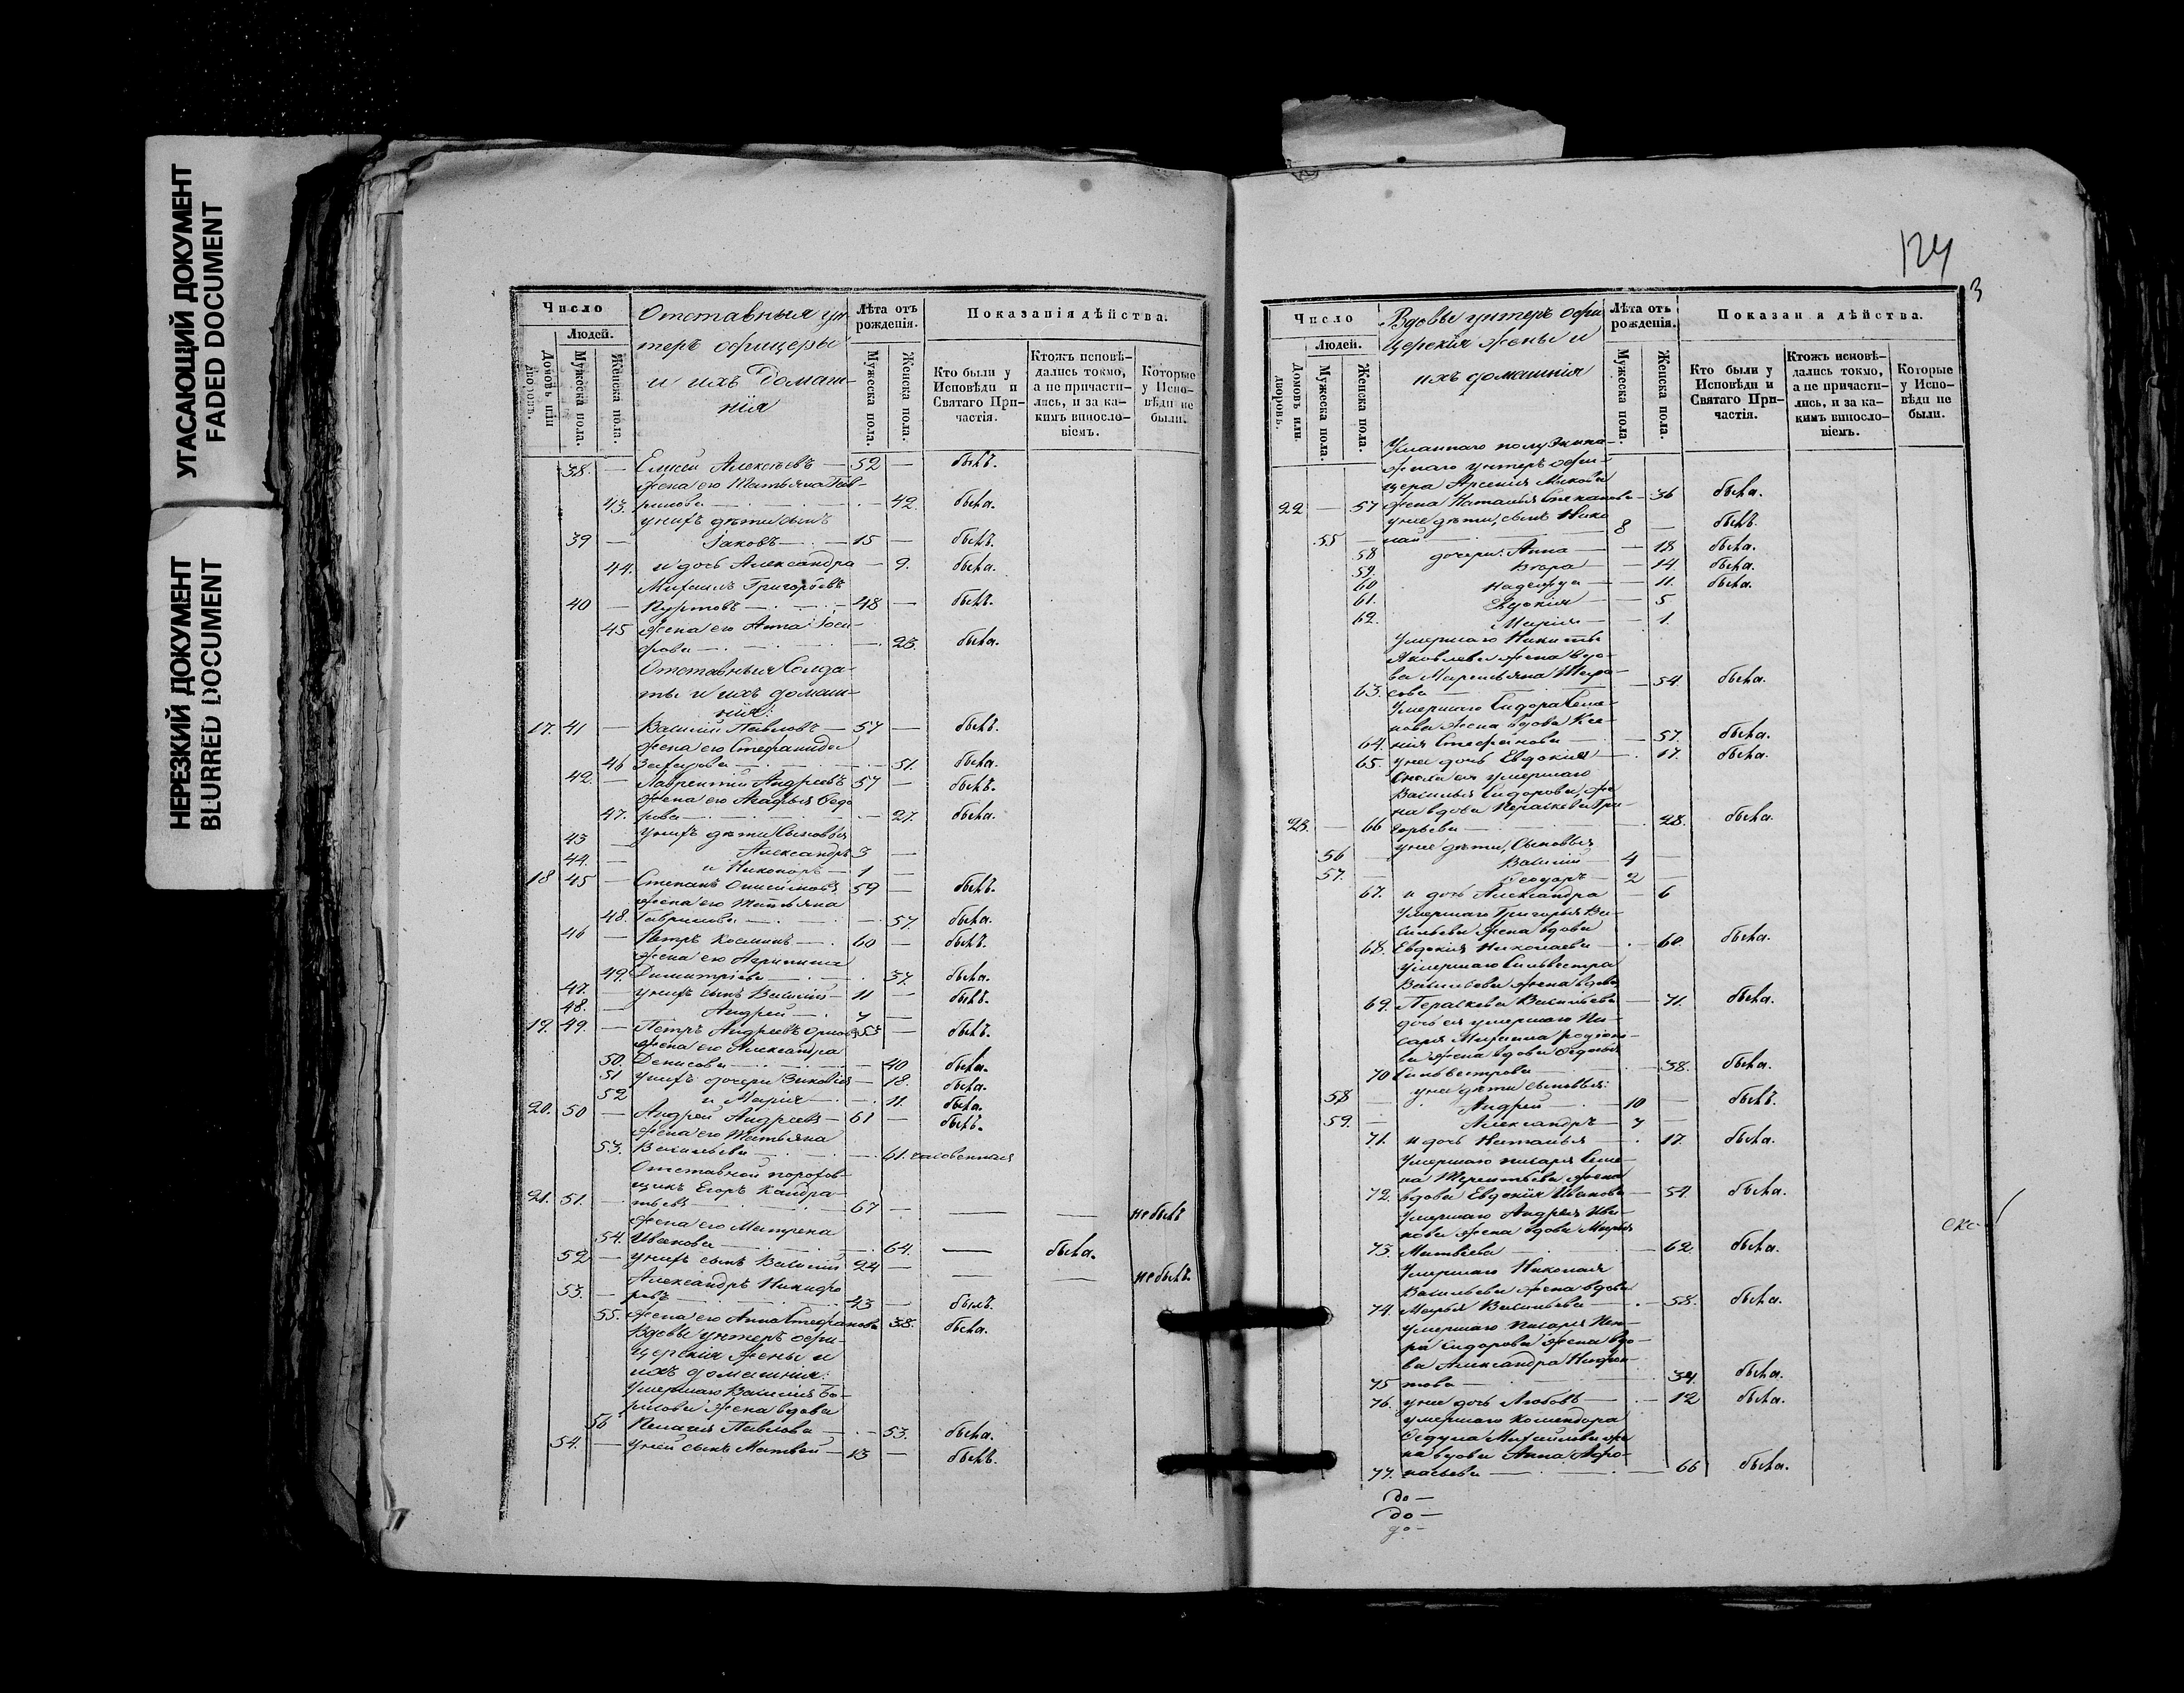 УГАСАЮЩИЙ ДОКУМЕНТ
FADED DOCUMENT
НЕРЕЗКИЙ ДОКУМЕНТ
BLURRED DOCUMENT
Число
Людей.
Домовъ или дворовъ.
Мужеска пола.
Женска пола.
Отставныя ун-
теръ офицеры
и ихъ домаш-
нія
Лѣта отъ рожденія.
Мужеска пола.
Женска пола.
Показанія дѣйства.
Кто были у Исповѣди и Святаго При-частія.
Ктожъ исповѣ-дались токмо, а не причасти-лись, и за ка-кимъ винословіемъ.
Которые у Испо-вѣди не были.
38. — Елисей Алексѣевъ — 52 — былъ.
жена его Татьяна Гав-
43. рилова — 42. была.
у нихъ дѣти сынъ
39 — Іаковъ — 15 — былъ.
44. и дочь Александра — 9. была.
Михаилъ Григорьевъ
40 — 48 — былъ.
45 жена его Анна Іоси-
фова — 23. была.
Отставныя Солда-
ты и ихъ домаш-
нія:
17. 41 — Василій Павловъ — 57 — былъ.
жена его Стефанида
46 — 51. была.
42. — Лаврентій Андреевъ 57 — былъ.
жена его Федо
47. рова — 27. была.
43 — у нихъ дѣти Сыновья
Александръ 3 —
44. — и Никоноръ — 1 —
18 45 — Степанъ 59 — былъ.
жена его Татьяна
48. Гаврилова — 57. была.
46 — Петръ Косминъ — 60 — былъ.
жена его Агрипина
49. Димитріева — 37. была.
47. — у нихъ сынъ Василій — 11 — былъ.
48. — Андрей — 7 —
19. 49. — Петръ Андреевъ 53 — былъ.
жена его Александра
50. Денисова — 40 была.
51 у нихъ дочери Зиновія — 18. была.
52 и Марія — 11. была.
20. 50 — Андрей Андреевъ — 61 — былъ.
жена его Татьяна
53. Васильева — 61.
Отставной
щикъ Егоръ Кандра-
21. 51. — тьевъ — 67 — — — не былъ
жена его Матрена
54. Иванова — 64. — была.
52 — у нихъ сынъ Василій 24 — — — не былъ.
Александръ Никифо
53. — ровъ — 43 — былъ.
55. жена его Анна Стефанова 38. была.
Вдовы унтеръ офи-
церскія жены и
ихъ домашнія:
Умершаго Василія
жена вдова
56 Пелагія Павлова — 53. была.
54. — у ней сынъ Матвей — 13 — былъ.
124
3
Число
Людей.
Домовъ или дворовъ.
Мужеска пола.
Женска пола.
Вдовы унтеръ офи
церскія жены и
ихъ домашнія
Лѣта отъ рожденія.
Мужеска пола.
Женска пола.
Показан я дѣйства.
Кто были у Исповѣди и Святаго При-частія.
Ктожъ исповѣ-дались токмо, а не причасти-лись, и за ка-кимъ винословіемъ.
Которые у Испо-вѣди не были.
унтеръ офи-
цера Арсенія
22 — 57 жена Наталья Степанова — 36 была.
у нее дѣти, сынъ Нико
55 — лай — 8 — былъ.
58 дочери: Анна — 18 была.
59. Вѣра — 14 была.
60 Надежда — 11. была.
61. Евдокія — 5
62. Марія — 1.
Умершаго Никиты
Яковлева жена вдо-
ва
63. — 54. была.
Умершаго Сидора Семе-
нова жена вдова Ксе-
64. нія Стефанова — 57. была.
65. у нее дочь Евдокія — 17. была.
умершаго
Василья Сидорова, же
на вдова Параскева Гри-
23. — 66 горьева — 28. была.
у нее дѣти, Сыновья
56 — Василій — 4 —
57. — Ѳеодоръ — 2 —
67. и дочь Александра — 6
Умершаго Григорья Ва-
сильева жена вдова
68. Евдокія Николаева — 60. была.
Умершаго Сильвестра
Васильева жена вдова
69. Параскева Васильева — 71. была.
дочь ея умершаго Пи-
саря Михаила Родіоно-
ва жена вдова
70 Сильвестрова — 38. была.
у нея дѣти сыновья:
58 — Андрей — 10 — былъ.
59. — Александръ — 7 —
71. и дочь Наталья — 17. была.
Умершаго писаря Семе-
на Терентьева жена
72. вдова Евдокія Иванова — 54 была.
Умершаго Андрея Ива-
нова жена вдова Марья
73. Матвѣева — 62. была.
Умершаго Николая
Васильева жена вдова
74. Марья Васильева — 58. была.
умершаго писаря
Сидорова жена вдо-
ва Александра
75 — 34. была.
76. у нее дочь Любовь — 12 была.
умершаго
Михайлова же
на вдова Анна Афо-
77. насьева — 66 была.
до —
до —
до —